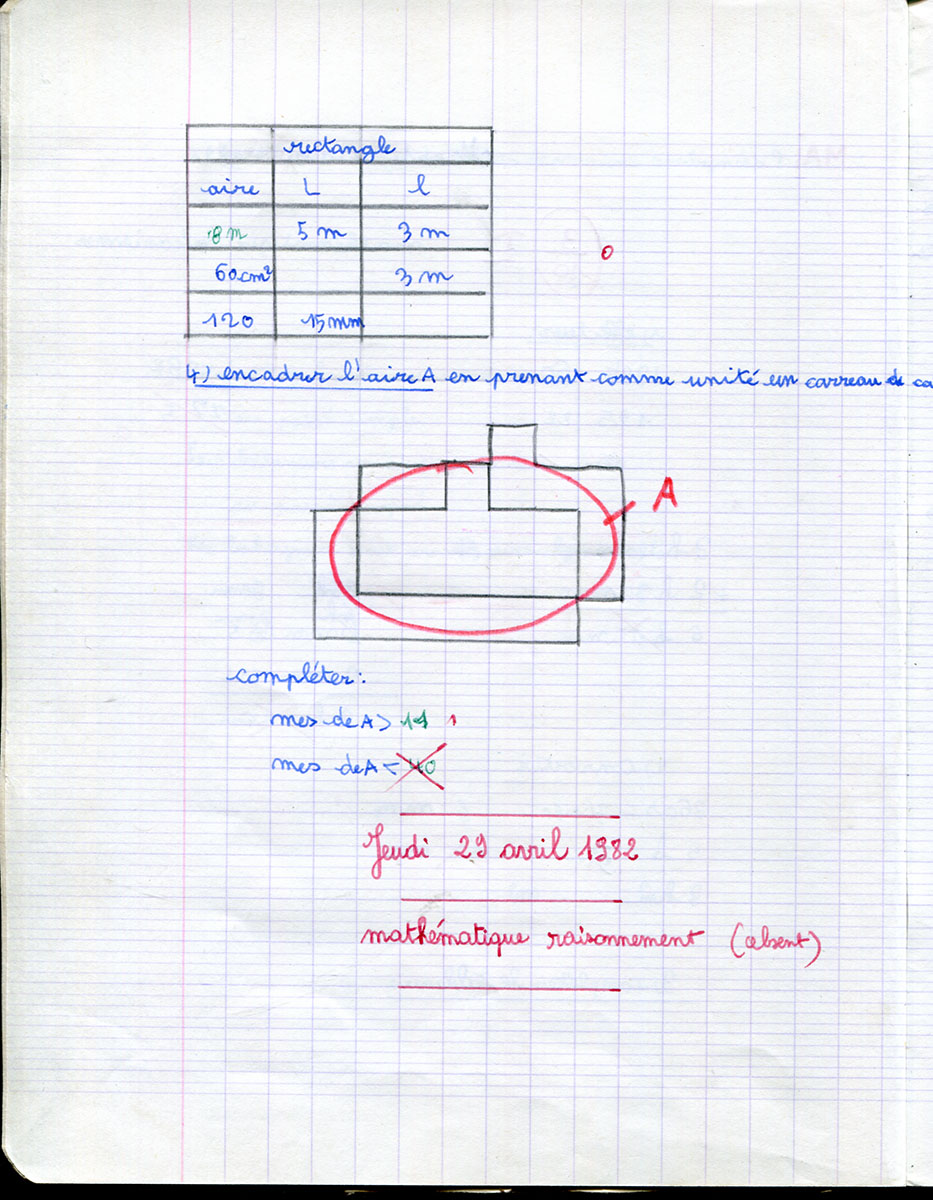 rectangle
aire L l
8m 5 m 3 m
60cm² 3 m
120 15mm
0
4) encadrer l'aire A en prenant comme unité un carreau de ca
A
compléter:
mes de A > 14 1
mes de A < 40
Jeudi 29 avril 1982
mathématique raisonnement (absent)